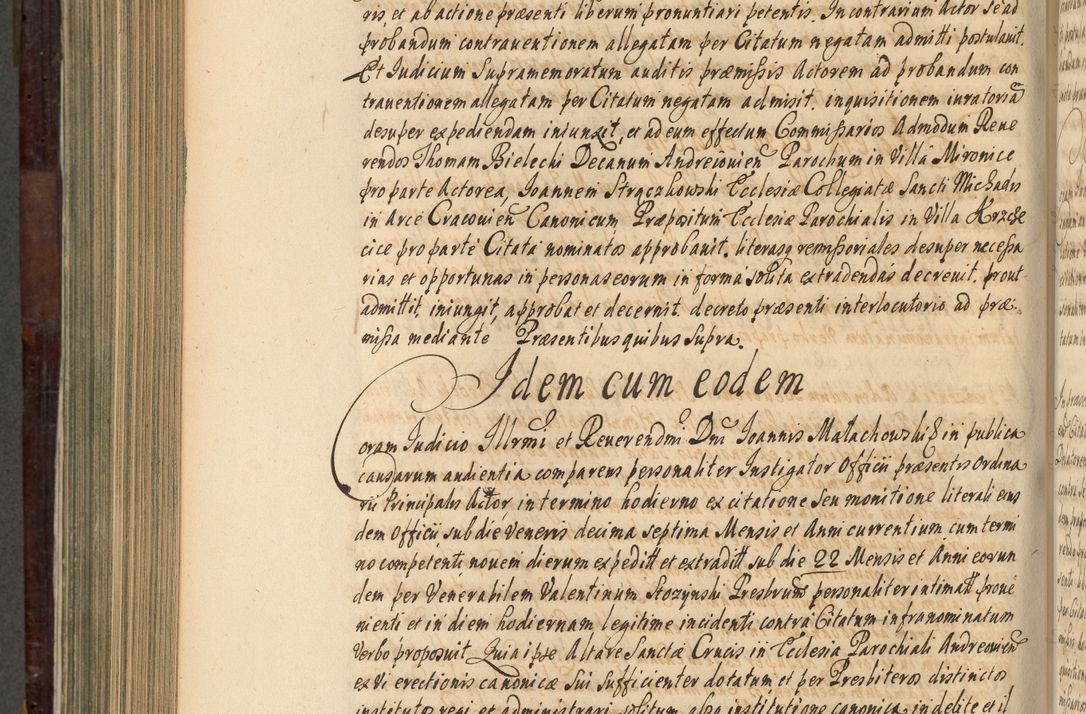 ris, et ab actione præsenti liberum pronuntiari petentis. In contrarium Actor se ad
probandum contrauentionem allegatam per Citatum negatam admitti postulauit.
Et Iudicium Supramemoratum auditis præmissis Actorem ad probandum con
trauentionem allegatam per Citatum negatam admisit. inquisitionem iuratoria
desuper expediendam iniunxit, et ad eum effectum Commissarios Admodum Reue
rendos Thomam Bielecki Decanum Andreouien Parochum in Villa Mironice
pro parte Actorea, Ioannem Strączkowski Ecclesiæ Collegiatæ Sancti Michaelis
in Arce Cracouien Canonicum Præpositum Ecclesiæ Parochialis in Villa Krzcię
cice pro parte Citata nominatos approbauit. literasq remissoriales desuper necessa
rias et opportunas in personas eorum in forma solita extradendas decreuit. prout
admittit, iniungit, approbat et decernit. decreto præsenti interlocutorio ad præ
missa mediante Præsentibus quibus Supra.
Idem cum eodem
Coram Iudicio Illrmi et Reuerendmi Dni Ioannis Małachowski E in publica
causarum audientia comparens personaliter Instigator Officii præsentis Ordina
rii Principalis Actor, in termino hodierno ex citatione Seu monitione literali eius
dem Officii sub die Veneris decima septima Mensis et Anni currentium cum termi
no competenti nouem dierum expeditt et extraditt sub die 22 Mensis et Anni eorun
dem per Venerabilem Valentinum Stozynski Presbrum personaliter intimatt proue
nienti et in diem hodiernam legitime incidenti contra Citatum infranominatum
Verbo proposuit. Quia ipse Altare Sanctæ Crucis in Ecclesia Parochiali Andreouien
ex Vi erectionis canonicæ Sui sufficienter dotatum et per Presbiteros distinctos
institutos regi et administrari solitum absq institutione canonica in delite et il